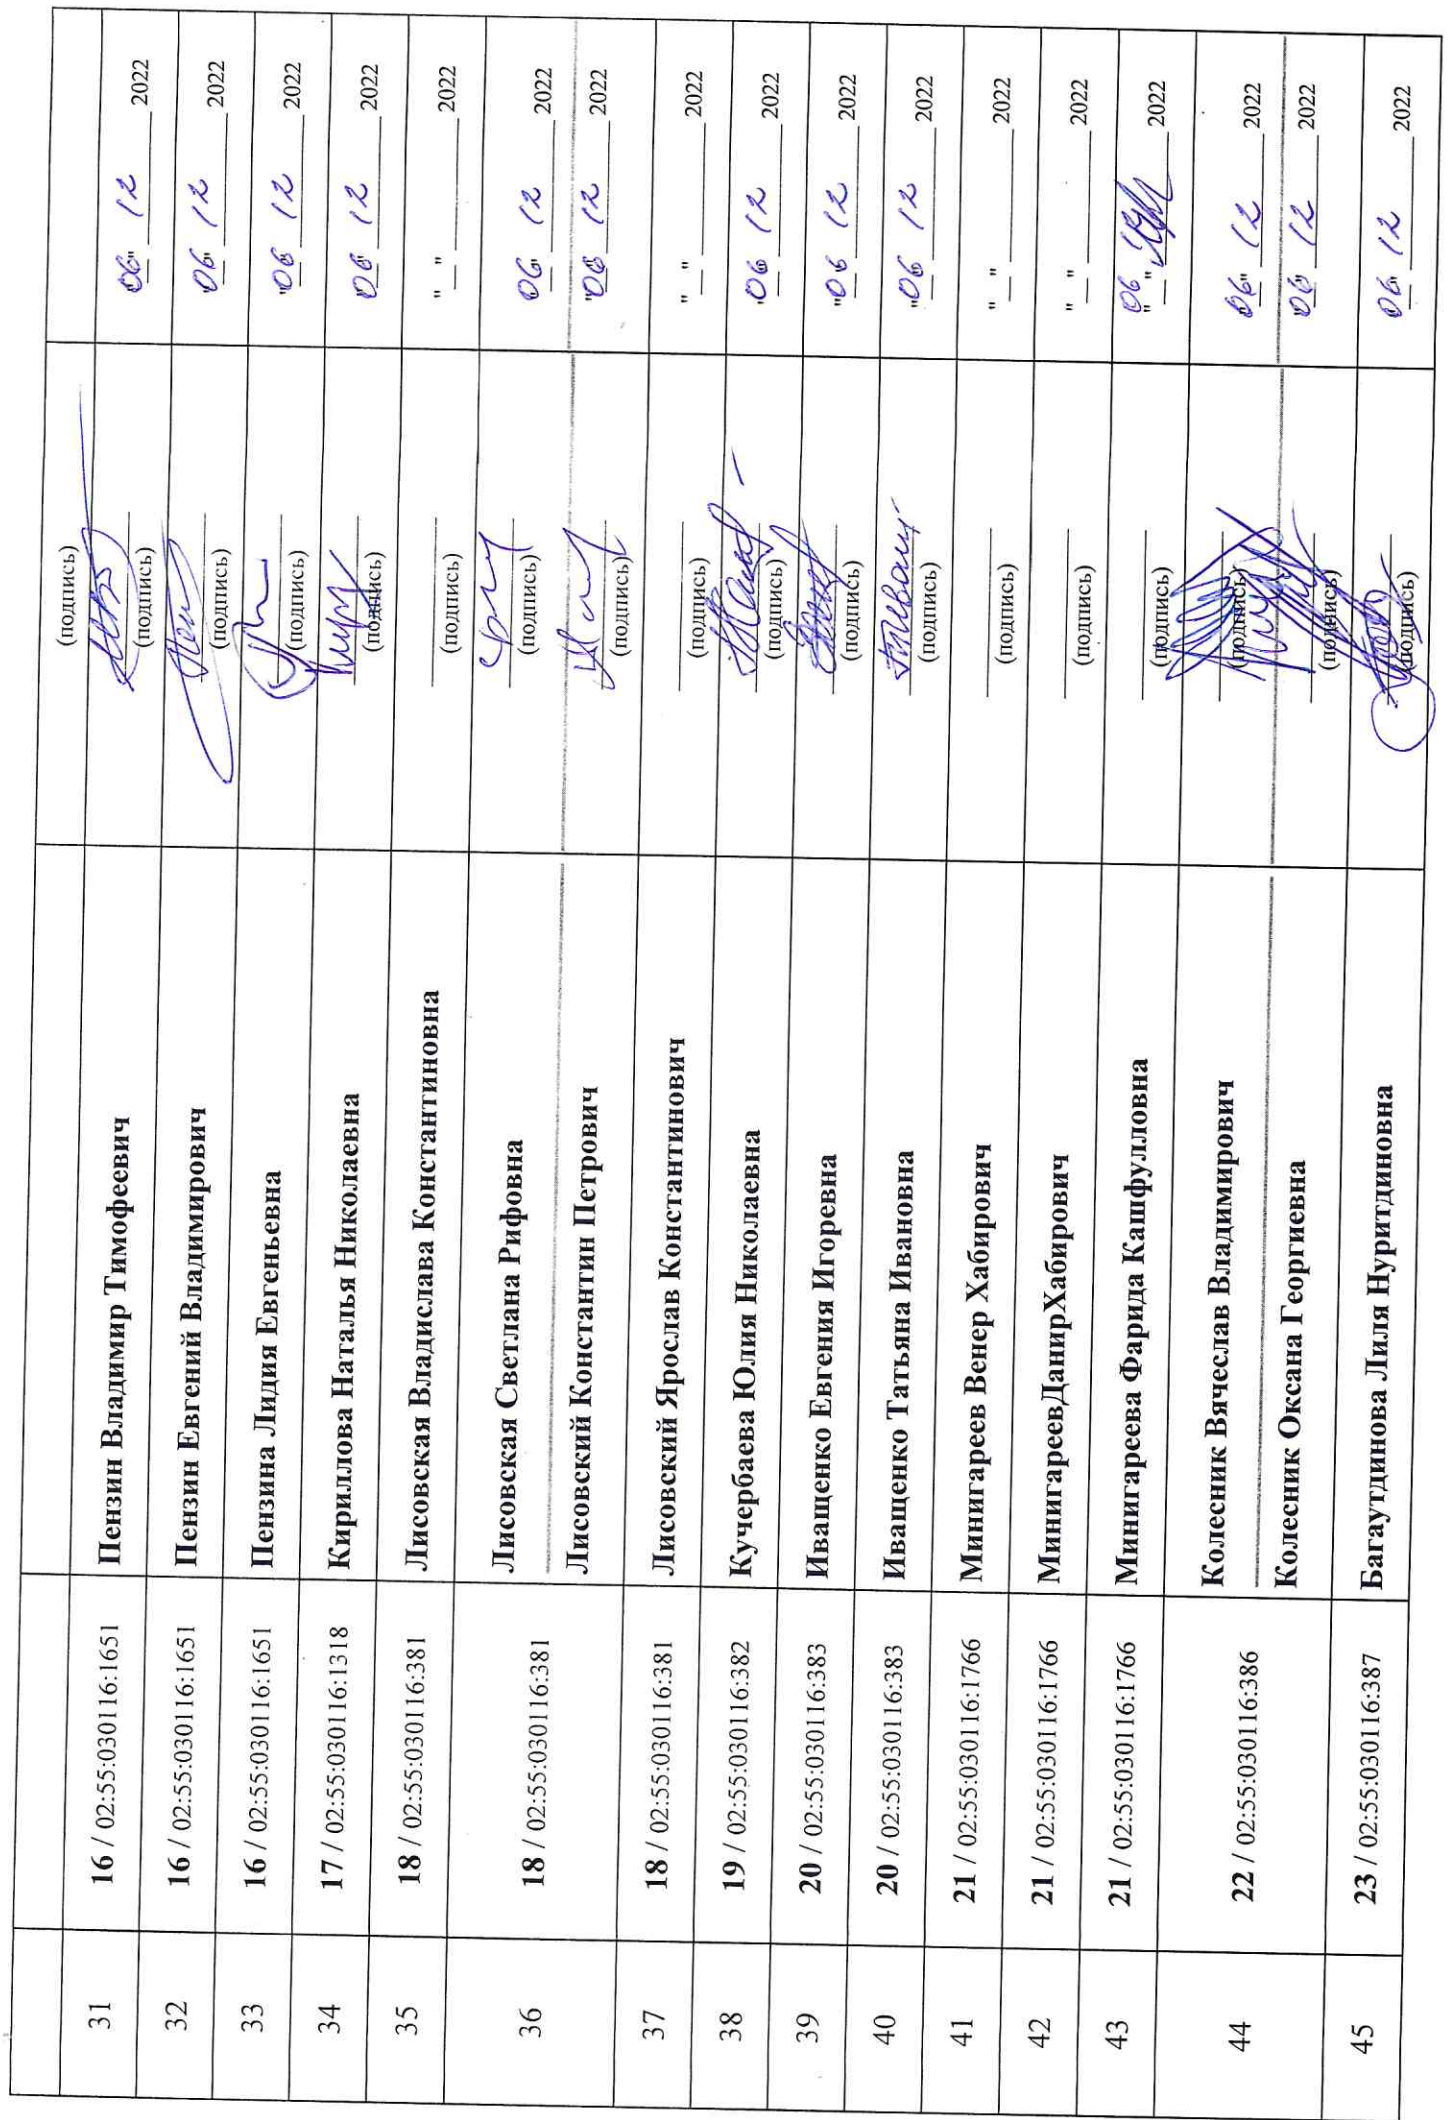 (подпись)
31 16 / 02:55:030116:1651 Пензин Владимир Тимофеевич (подпись) "06" 12 2022
32 16 / 02:55:030116:1651 Пензин Евгений Владимирович (подпись) "06" 12 2022
33 16 / 02:55:030116:1651 Пензина Лидия Евгеньевна (подпись) "06 12 2022
34 17 / 02:55:030116:1318 Кириллова Наталья Николаевна (подпись) 06" 12 2022
35 18 / 02:55:030116:381 Лисовская Владислава Константиновна (подпись) "__" ______ 2022
36 18 / 02:55:030116:381 Лисовская Светлана Рифовна (подпись) 06" 12 2022
Лисовский Константин Петрович (подпись) "06 12 2022
37 18 / 02:55:030116:381 Лисовский Ярослав Константинович (подпись) "__" ______ 2022
38 19 / 02:55:030116:382 Кучербаева Юлия Николаевна (подпись) "06 12 2022
39 20 / 02:55:030116:383 Иващенко Евгения Игоревна (подпись) "06 12 2022
40 20 / 02:55:030116:383 Иващенко Татьяна Ивановна (подпись) "06 12 2022
41 21 / 02:55:030116:1766 Минигареев Венер Хабирович (подпись) "__" ______ 2022
42 21 / 02:55:030116:1766 МинигареевДанирХабирович (подпись) "__" ______ 2022
43 21 / 02:55:030116:1766 Минигареева Фарида Кашфулловна (подпись) "06" 2022
44 22 / 02:55:030116:386 Колесник Вячеслав Владимирович (подпись) 06" 12 2022
Колесник Оксана Георгиевна (подпись) "06 12 2022
45 23 / 02:55:030116:387 Багаутдинова Лиля Нуритдиновна (подпись) 06" 12 2022